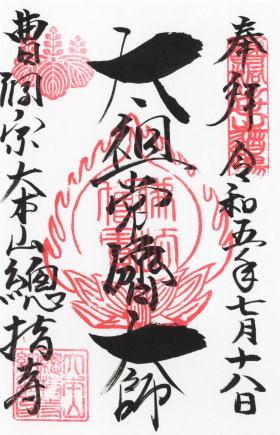 奉拝 令和五年七月十八日
太祖常済大師
曹洞宗大本山總持寺